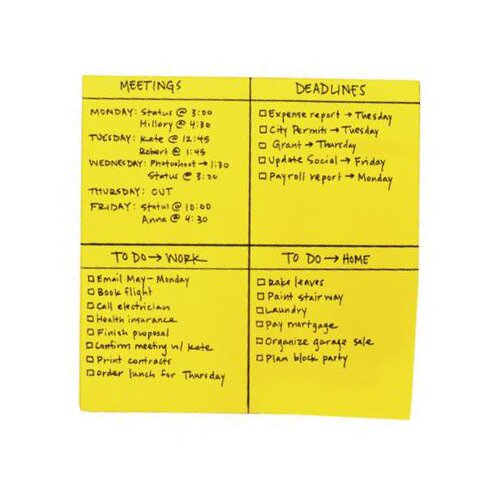 MEETINGS
MONDAY: Status @ 3:00
Hillary @ 4:30
TUESDAY: Kate @ 12:45
Robert @ 1:45
WEDNESDAY: Photoshoot → 1:30
Status @ 3:00
THURSDAY: OUT
FRIDAY: Status @ 10:00
Anna @ 4:30
DEADLINES
☐ Expense report → Tuesday
☐ City Permits → Tuesday
☐ Grant → Thursday
☐ Update Social → Friday
☐ Payroll report → Monday
TO DO → WORK
☐ Email May - Monday
☐ Book flight
☐ Call electrician
☐ Health insurance
☐ Finish proposal
☐ Confirm meeting w/ Kate
☐ Print contracts
☐ Order lunch for Thursday
TO DO → HOME
☐ Rake leaves
☐ Paint stair way
☐ Laundry
☐ Pay mortgage
☐ Organize garage sale
☐ Plan block party